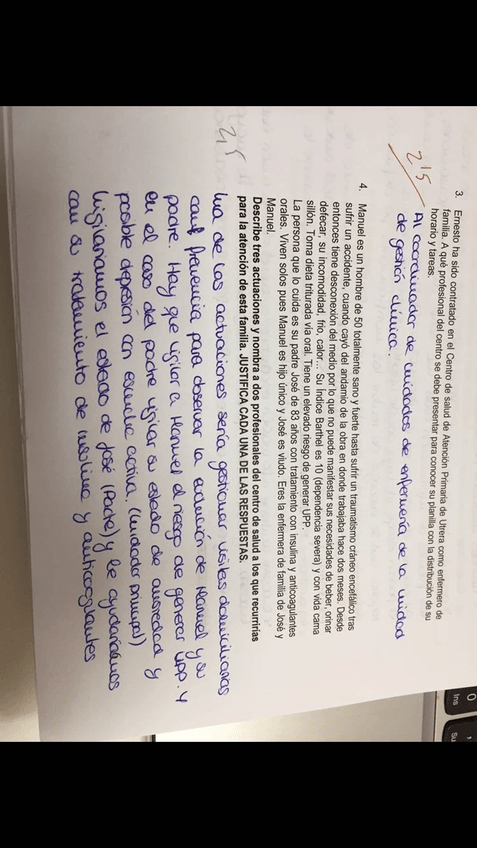 3. Ernesto ha sido contratado en el Centro de salud de Atención Primaria de Utrera como enfermero de
familia. A qué profesional del centro se debe presentar para conocer su planilla con la distribución de su
horario y tareas.
2'5
Al coordinador de cuidados de enfermería de la unidad
de gestión clínica.
4. Manuel es un hombre de 50 totalmente sano y fuerte hasta sufrir un traumatismo cráneo encefálico tras
sufrir un accidente, cuando cayó del andamio de la obra en donde trabajaba hace dos meses. Desde
entonces tiene desconexión del medio por lo que no puede manifestar sus necesidades de beber, orinar
defecar, su incomodidad, frío, calor... Su Índice Barthel es 10 (dependencia severa) y con vida cama
sillón. Toma dieta triturada vía oral. Tiene un elevado riesgo de generar UPP.
La persona que lo cuida es su padre José de 83 años con tratamiento con insulina y anticoagulantes
orales. Viven solos pues Manuel es hijo único y José es viudo. Eres la enfermera de familia de José y
Manuel.
Describe tres actuaciones y nombra a dos profesionales del centro de salud a los que recurrirías
para la atención de esta familia. JUSTIFICA CADA UNA DE LAS RESPUESTAS.
2'5
Una de las actuaciones sería gestionar visitas domiciliarias
con frecuencia para observar la evolución de Manuel y su
padre. Hay que vigilar a Manuel el riesgo de generar UPP. Y
en el caso del padre vigilar su estado de ansiedad y
posible depresión con escucha activa. (Cuidador principal)
Vigilaremos el estado de José (Padre) y le ayudaremos
con su tratamiento de insulina y anticoagulantes